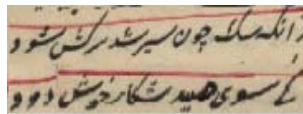 زانکه سگ چون سیر شد سرکش شود
کی سوی صید شکار خوش دود